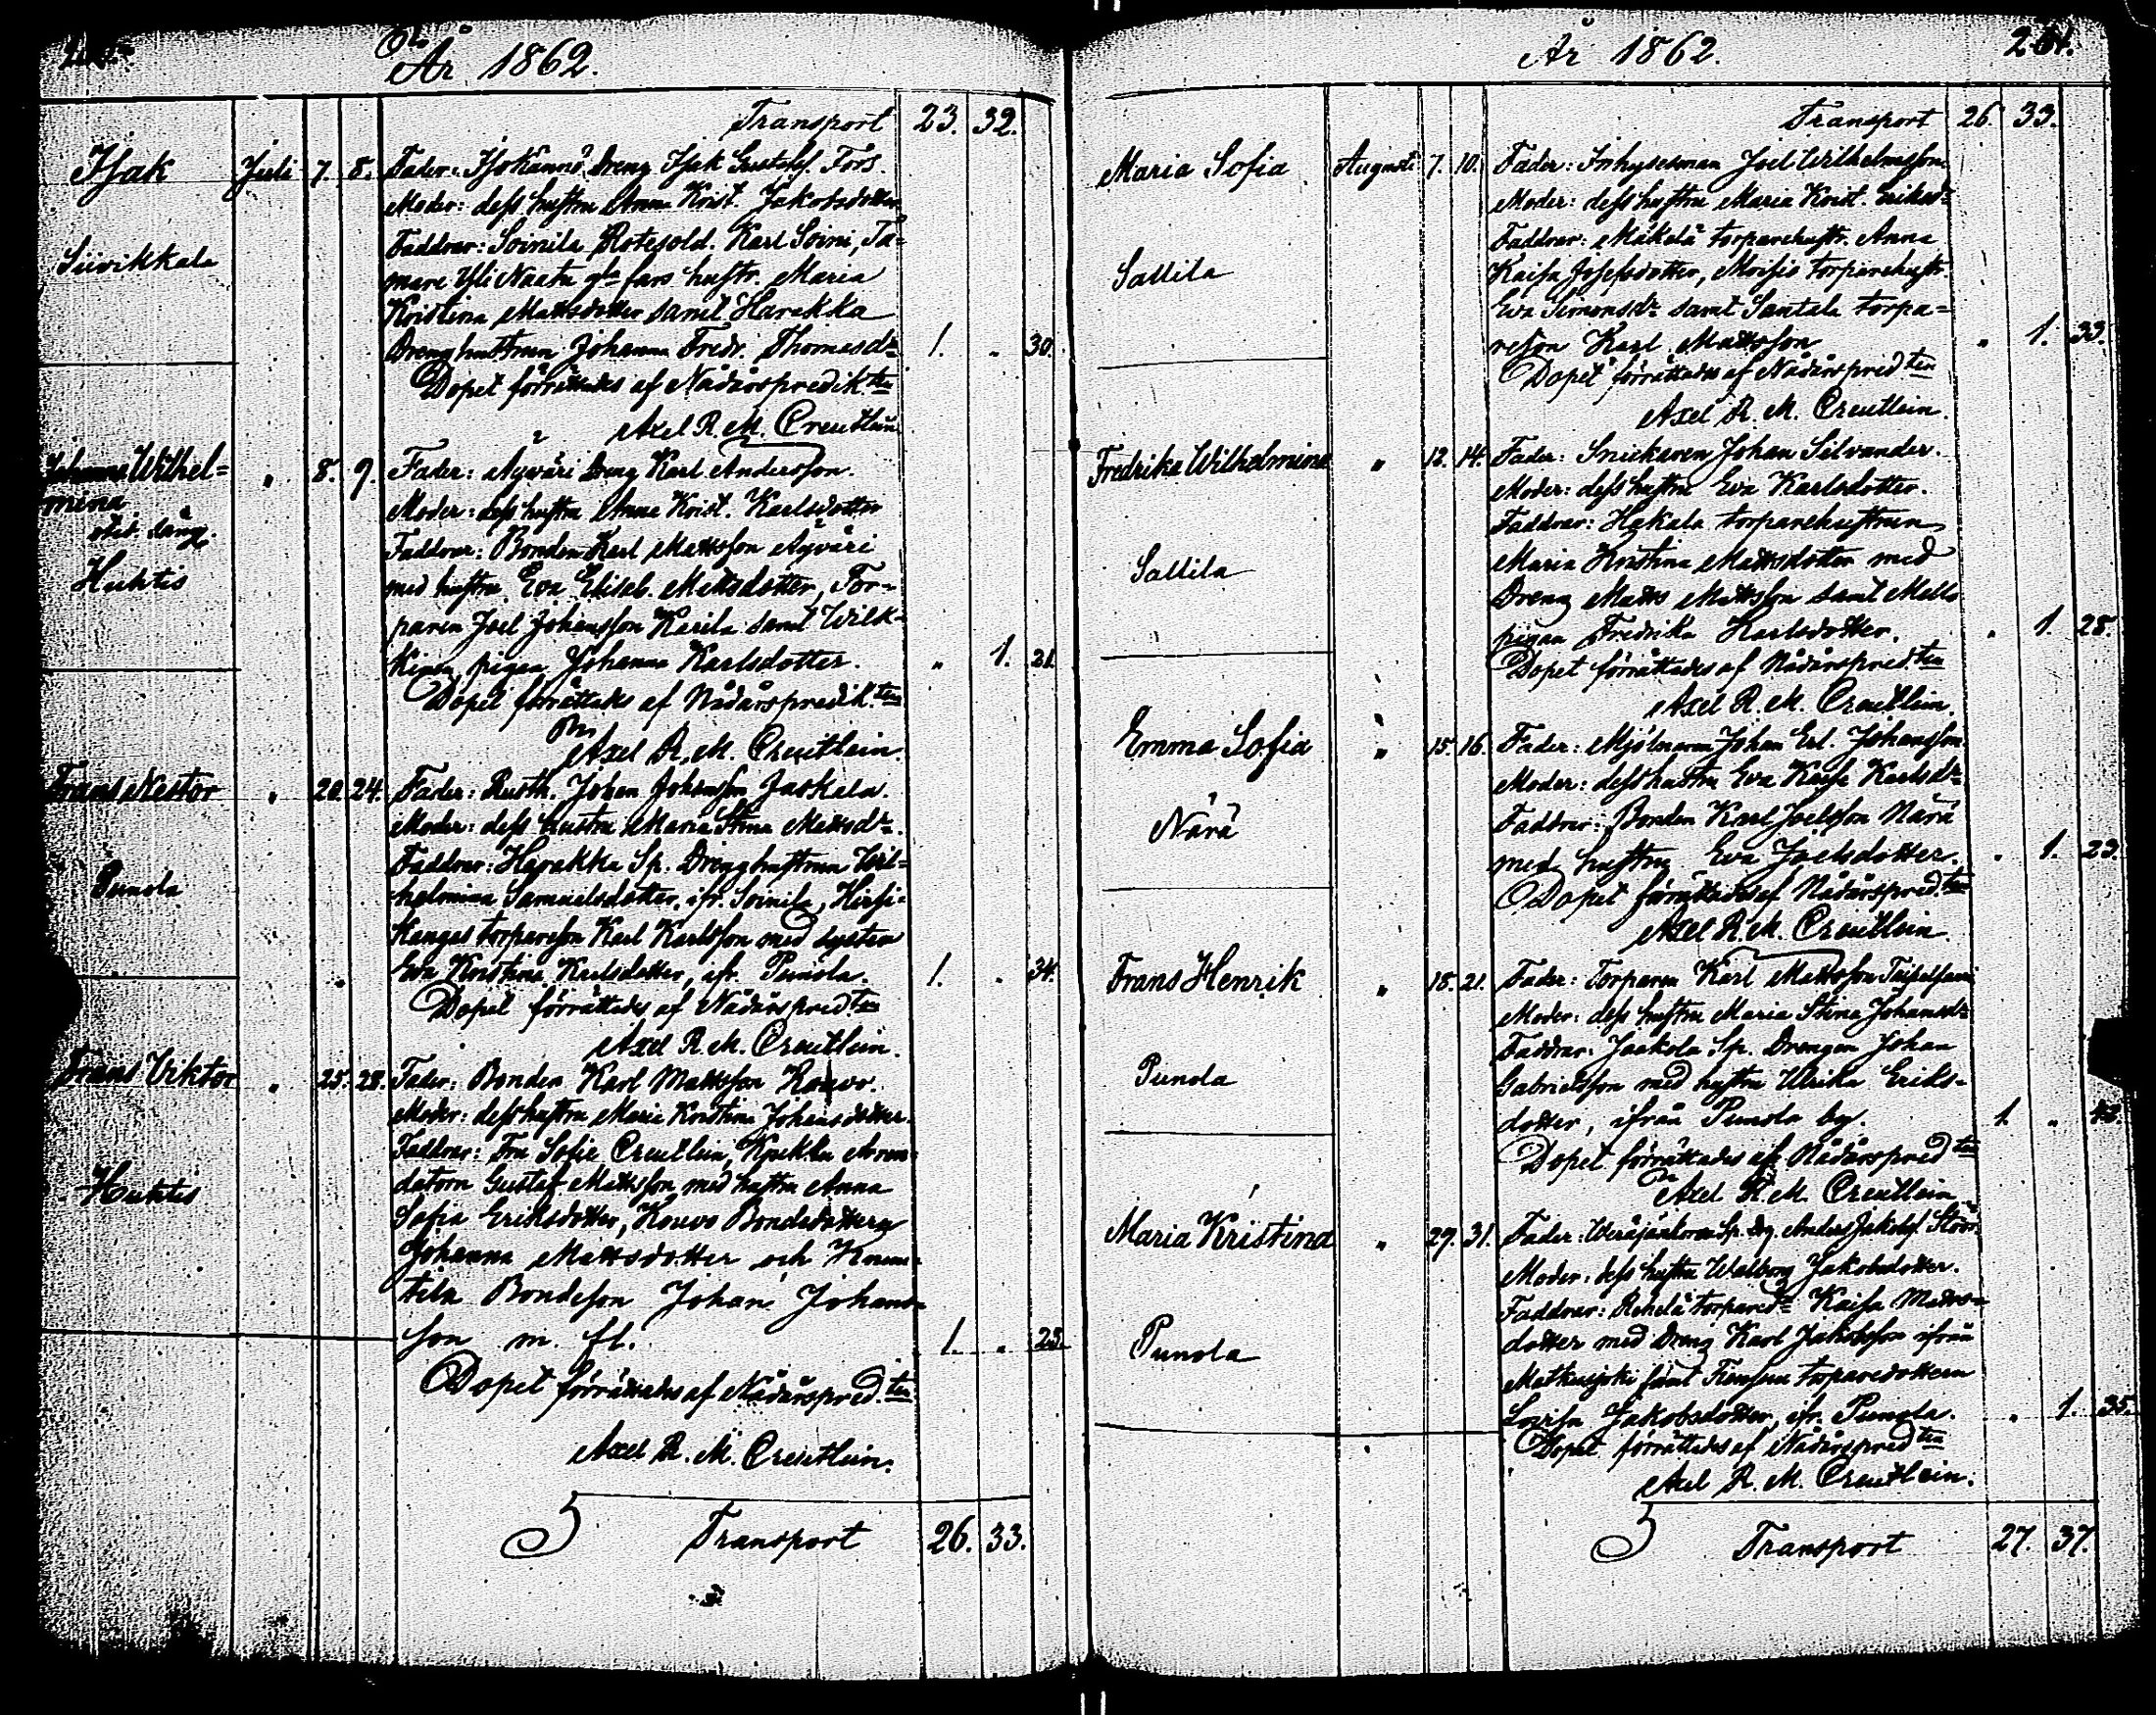 År 1862.
Transport 23. 32.
Isak Juli 7. 8. Fader: Isokanno Dreng Isak Gustafss. Fors.
Moder: dess hustru Anna Krist. Jakobsdotter
Siivikkala
Faddrar: Soinila Rotesold. Karl Soini, Ta-
mare Yli Naatu gla fars hustr. Maria
Kristina Mattsdotter samt Harakka
Drenghustrun Johanna Fredr. Thomasdr 1. „ 30.
Dopet förrättades af Nådårspredikten
Axel R. M. Creutlein
Johanna Wilhel-
mina
oäkt. säng.
Huhtis
„ 8. 9. Fader: Äyväri Dreng Karl Andersson.
Moder: dess hustru Anna Krist. Karlsdotter
Faddrar: Bonden Karl Mattsson Äyväri
med hustru Eva Elisab. Mattsdotter, Tor-
paren Joel Johansson Karila samt Wilk-
kinen pigan Johanna Karlsdotter. „ 1. 21.
Dopet förrättades af Nådårspredikten
Axel R. M. Creutlein.
Frans Nestor „ 20. 24. Fader: Rusth. Johan Johansson Jaskala.
Moder: dess hustru Maria Stina Mattsdr.
Punola
Faddrar: Harakka Sp. Drenghustrun Wil-
helmina Samuelsdotter, ifr. Soinila, Hirsi-
kangas torpareson Karl Karlsson med systern
Eva Kristina Karlsdotter, ifr. Punola. 1. „ 34.
Dopet förrättades af Nådårspredten
Axel R. M. Creutlein.
Frans Viktor „ 25. 28. Fader: Bonden Karl Mattsson Kouvo.
Moder: dess hustru Maria Kristina Johansdotter.
Huhtis
Faddrar: Fru Sofie Creutlein, Krekku Arren-
datorn Gustaf Mattsson med hustru Anna
Sofia Eriksdotter, Kouvo Bondedottern
Johanna Mattsdotter och
tila Bondeson Johan Johans-
son m. fl. 1. „ 28.
Dopet förrättades af Nådårspred.ten
Axel R. M. Creutlein.
Transport 26. 33.
År 1862. 261.
Transport 26. 33.
Maria Sofia Augusti 7. 10. Fader: Inhysesman Joel Wilhelmsson
Moder: dess hustru Maria Krist. Eriksdr
Sallila
Faddrar: Mäkelä torparehustr. Anna
Kaisa Josefsdotter, Moisio torparehustr.
Eva Simonsdr samt Santala torpa-
reson Karl Mattsson „ 1. 33.
Dopet förrättades af Nådårspredten
Axel R. M. Creutlein.
Fredrika Wilhelmina „ 12. 14. Fader: Snickaren Johan Silvander.
Moder: dess hustru Eva Karlsdotter.
Sallila
Faddrar: Hakala torparehustrun
Maria Kristina Mattsdotter med
Dreng Matts Mattsson samt Mells
pigan Fredrika Karlsdotter. „ 1. 28.
Dopet förrättades af Nådårspred.ten
Axel R. M. Creutlein.
Emma Sofia „ 15. 16. Fader: Mjölnaren Johan Erl. Johansson
Moder: dess hustru Eva Kaisa Karlsdr
Närä
Faddrar: Bonden Karl Joelsson Närä
med hustru Eva Joelsdotter. „ 1. 23.
Dopet förrättades af Nådårspred.ten
Axel R. M. Creutlein.
Frans Henrik „ 18. 21. Fader: Torparen Karl Mattsson
Moder: dess hustru Maria Stina Johansdr
Punola
Faddrar: Jaakola Sp. Drengen Johan
Gabrielsson med hustru Ulrika Eriks-
dotter, ifrån Punola by. 1. „
Dopet förrättades af Nådårspredten
Axel R. M. Creutlein
Maria Kristina „ 29. 31. Fader: Sp. Drg. Anders Jakobss. Stoor.
Moder: dess hustru Walborg Jakobsdotter.
Punola
Faddrar: Rekelä torparedr Kaisa Matts-
dotter med Dreng Karl Jakobsson ifrån
Matkusjoki samt torparedottern
Lovisa Jakobsdotter, ifr. Punola. „ 1. 35.
Dopet förrättades af Nådårspredten
Axel R. M. Creutlein.
Transport 27. 37.